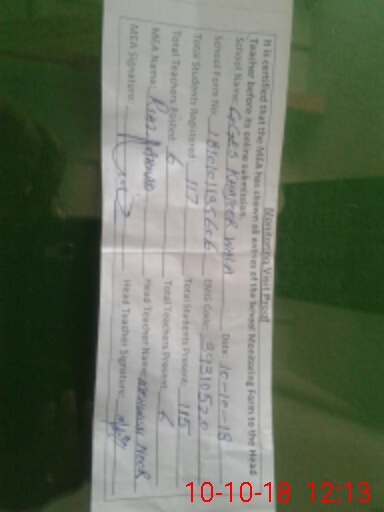 Monitoring Visit Proof
It is certified that the MEA has shown all entries of the School Monitoring Form to the Head
Teacher before its online submission.
School Name: GGPS KHAJOOR WALA Date: 10-10-18
School Form No: EMIS Code:
Total Students Registered: 117 Total Students Present: 115
Total Teachers Posted: 6 Total Teachers Present: 6
MEA Name: Riaz Ahmad Head Teacher Name: NOOR
MEA Signature: Head Teacher Signature:
10-10-18 12:13